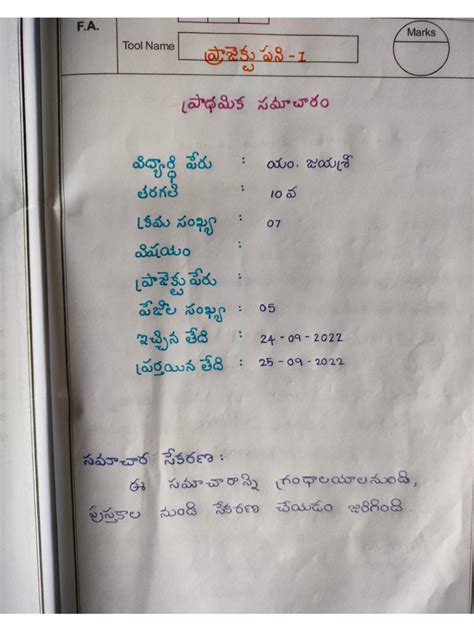 F.A.
Tool Name ప్రాజెక్టు పని - I
Marks
ప్రాథమిక సమాచారం
విద్యార్థి పేరు : యం. జయశ్రీ
తరగతి : 10 వ
క్రమ సంఖ్య : 07
విషయం :
ప్రాజెక్టు పేరు :
పేజీల సంఖ్య : 05
ఇచ్చిన తేది : 24-09-2022
పూర్తయిన తేది : 25-09-2022
సమాచార సేకరణ :
ఈ సమాచారాన్ని గ్రంథాలయాల నుండి,
పుస్తకాల నుండి సేకరణ చేయడం జరిగింది.